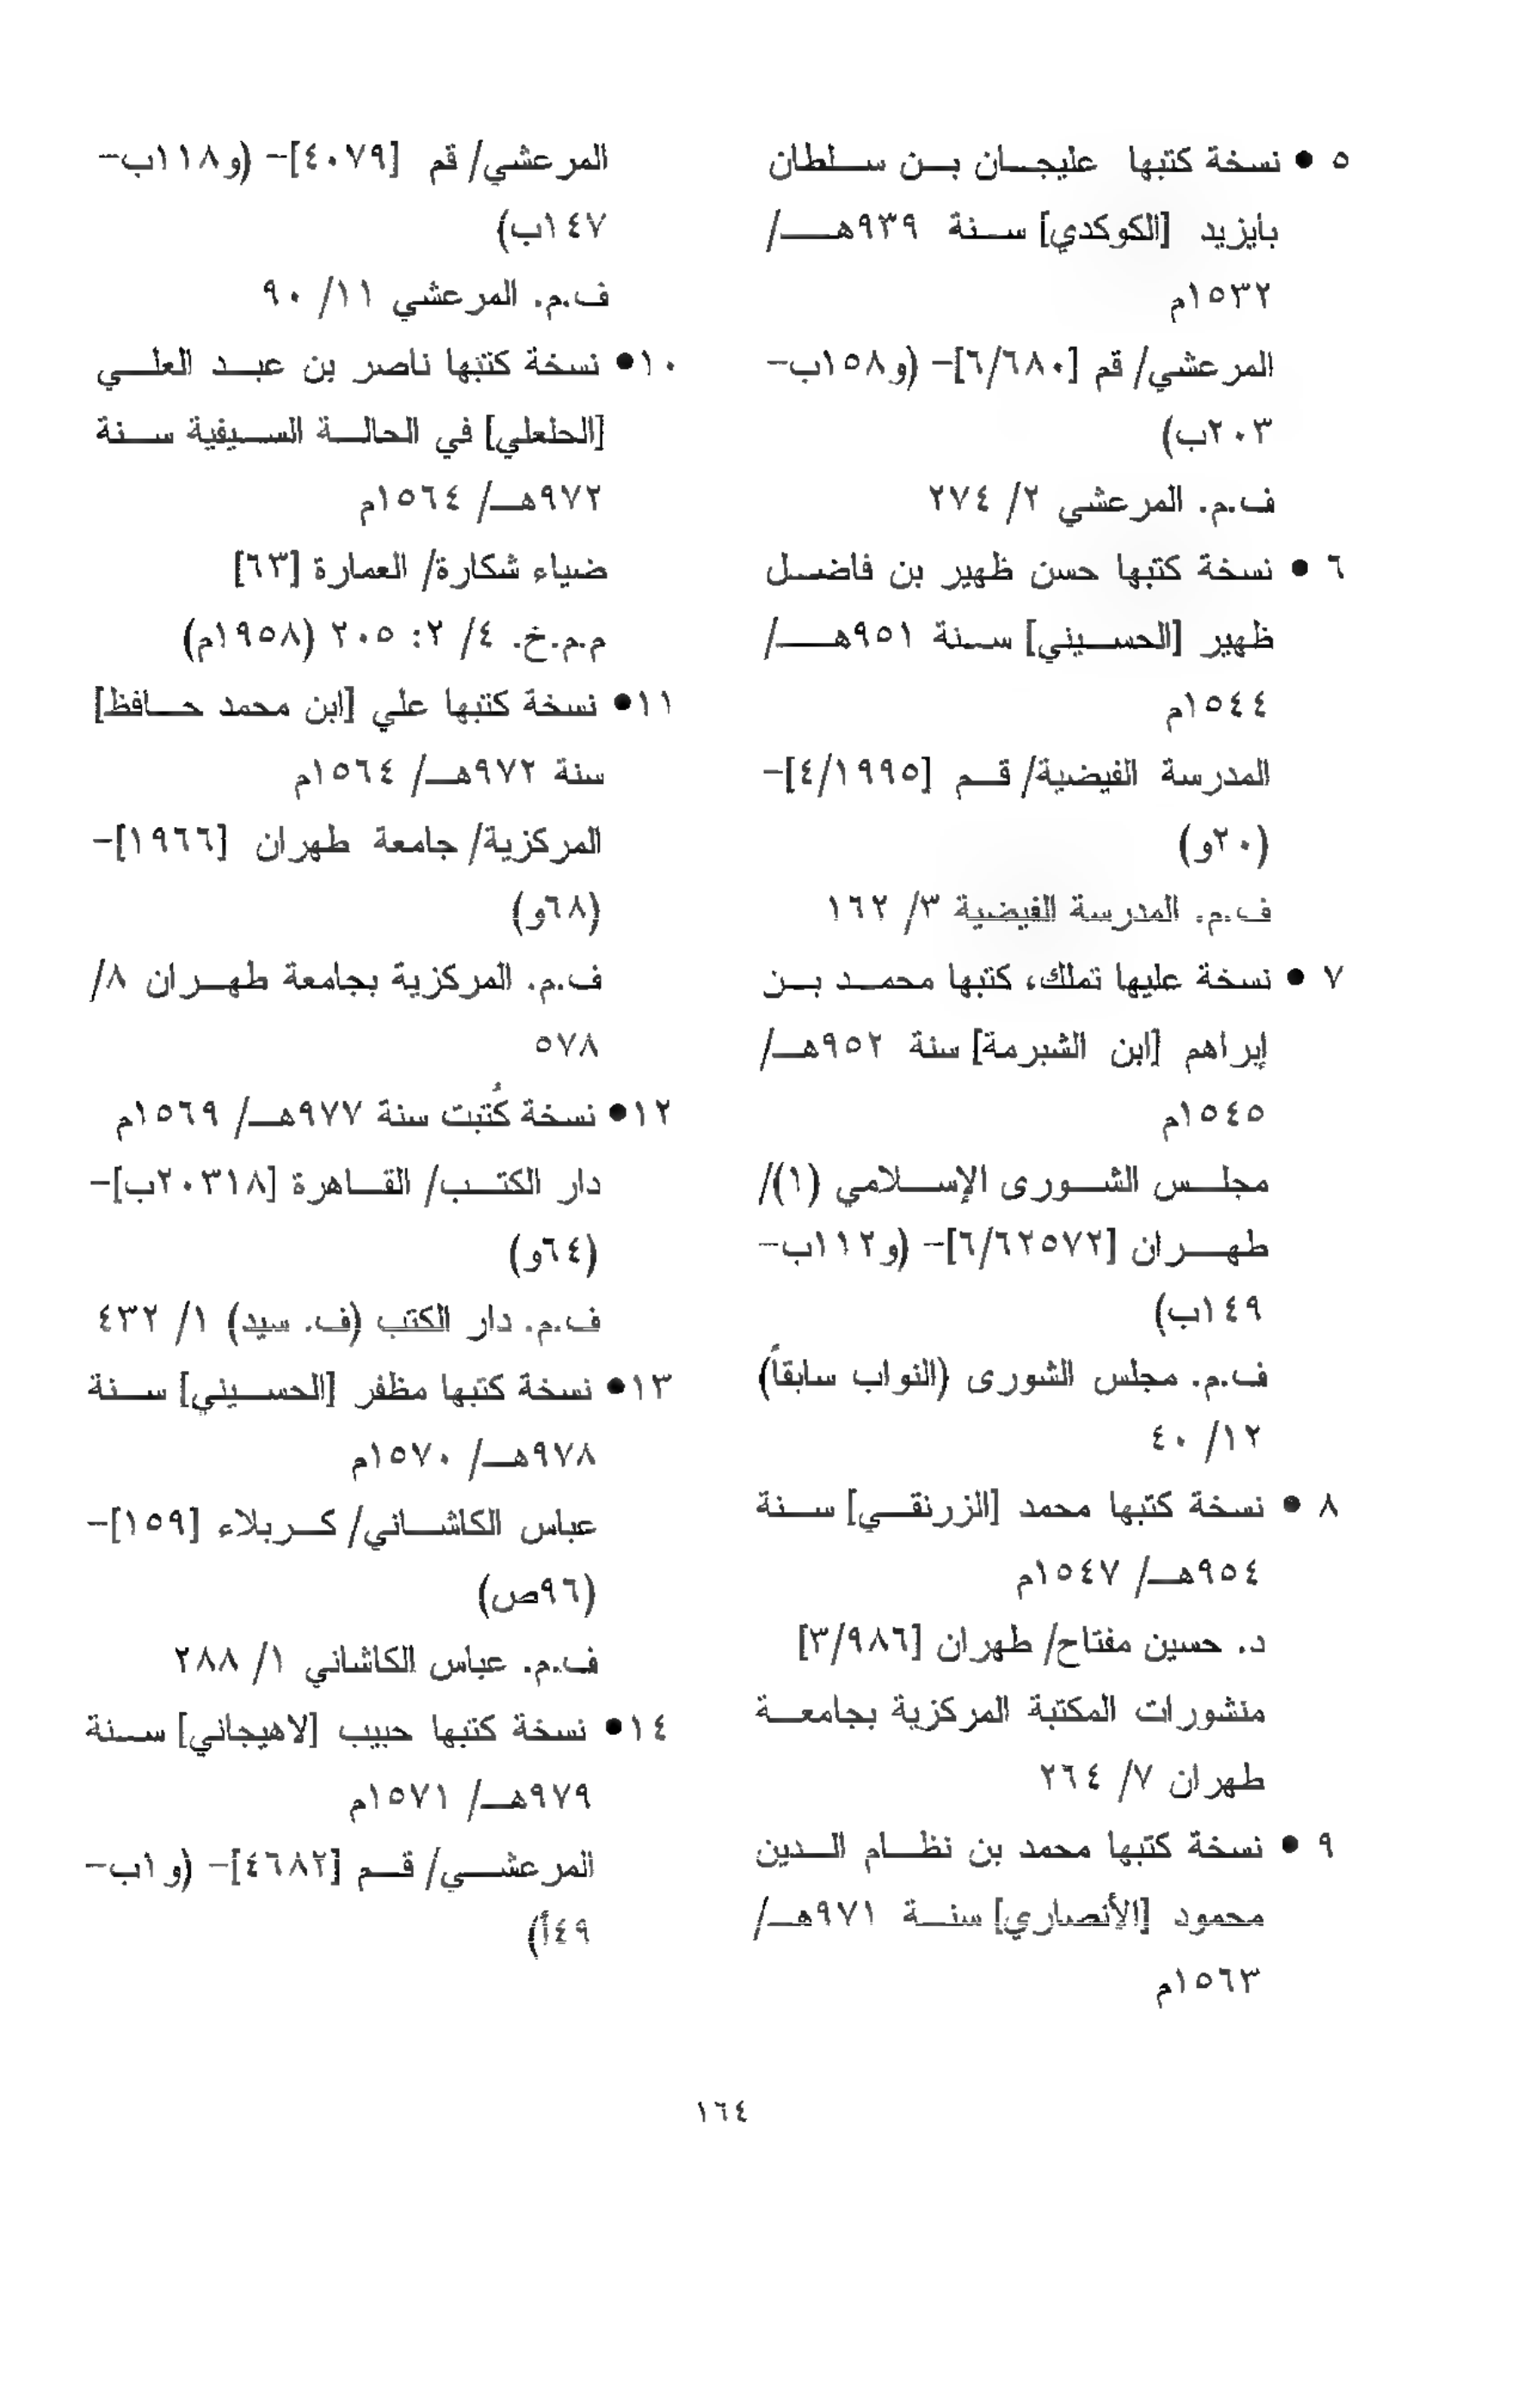 ٥ • نسخة كتبها عليجان بن سلطان
بايزيد [الكوكدي] سنة ٩٣٩هـ/
١٥٣٢م
المرعشي/ قم [٦/٦٨٠]- (و١٥٨ب-
٢٠٣ب)
ف.م. المرعشي ٢/ ٢٧٤
٦ • نسخة كتبها حسن ظهير بن فاضل
ظهير [الحسيني] سنة ٩٥١هـ/
١٥٤٤م
المدرسة الفيضية/ قم [٤/١٩٩٥]-
(٢٠و)
ف.م. المدرسة الفيضية ٣/ ١٦٢
٧ • نسخة عليها تملك، كتبها محمد بن
إبراهم [ابن الشبرمة] سنة ٩٥٢هـ/
١٥٤٥م
مجلس الشورى الإسلامي (١)/
طهران [٦/٦٢٥٧٢]- (و١١٢ب-
١٤٩ب)
ف.م. مجلس الشورى (النواب سابقاً)
١٢/ ٤٠
٨ • نسخة كتبها محمد [الزرنقي] سنة
٩٥٤هـ/ ١٥٤٧م
د. حسين مفتاح/ طهران [٣/٩٨٦]
منشورات المكتبة المركزية بجامعة
طهران ٧/ ٢٦٤
٩ • نسخة كتبها محمد بن نظام الدين
محمود [الأنصاري] سنة ٩٧١هـ/
١٥٦٣م
المرعشي/ قم [٤٠٧٩]- (و١١٨ب-
١٤٧ب)
ف.م. المرعشي ١١/ ٩٠
١٠• نسخة كتبها ناصر بن عبد العلي
[الحلعلي] في الحالة السيفية سنة
٩٧٢هـ/ ١٥٦٤م
ضياء شكارة/ العمارة [٦٣]
م.م.خ. ٤/ ٢: ٢٠٥ (١٩٥٨م)
١١• نسخة كتبها علي [ابن محمد حافظ]
سنة ٩٧٢هـ/ ١٥٦٤م
المركزية/ جامعة طهران [١٩٦٦]-
(٦٨و)
ف.م. المركزية بجامعة طهران ٨/
٥٧٨
١٢• نسخة كُتبت سنة ٩٧٧هـ/ ١٥٦٩م
دار الكتب/ القاهرة [٢٠٣١٨ب]-
(٦٤و)
ف.م. دار الكتب (ف. سيد) ١/ ٤٣٢
١٣• نسخة كتبها مظفر [الحسيني] سنة
٩٧٨هـ/ ١٥٧٠م
عباس الكاشاني/ كربلاء [١٥٩]-
(٩٦ص)
ف.م. عباس الكاشاني ١/ ٢٨٨
١٤• نسخة كتبها حبيب [لاهيجاني] سنة
٩٧٩هـ/ ١٥٧١م
المرعشي/ قم [٤٦٨٢]- (و١ب-
٤٩أ)
١٦٤